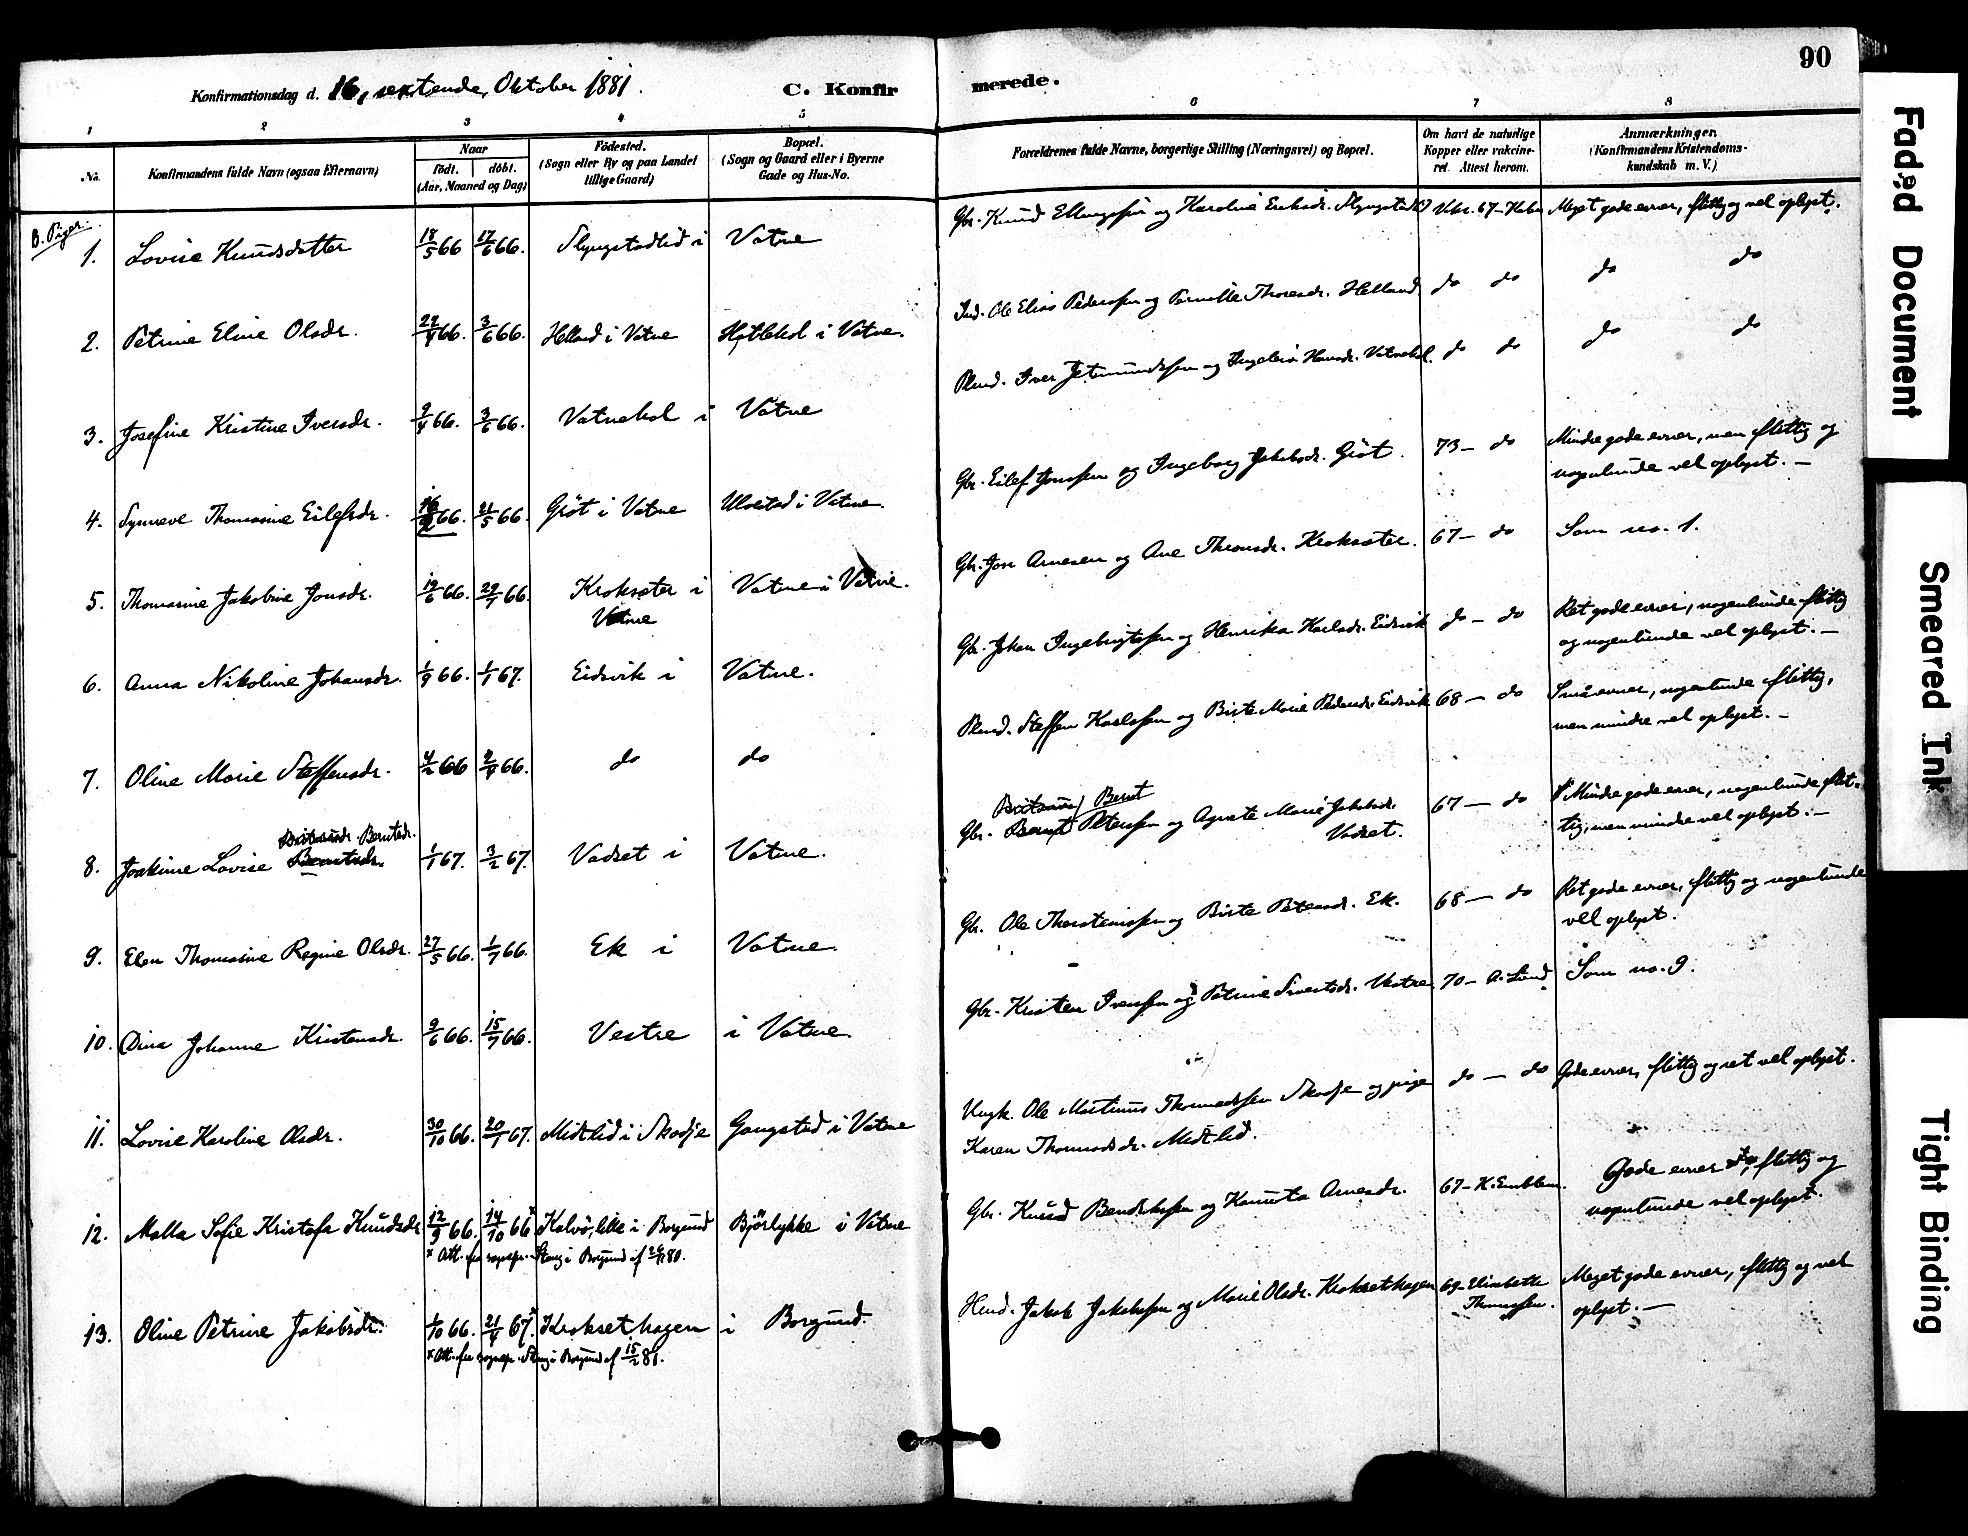 90
Konfirmationsdag d. 16, sextende, Oktober 1881. C. Konfirmerede.
1 2 3 4 5 6 7 8
No. Konfirmandens fulde Navn (ogsaa Efternavn) Naar født. døbt. (Aar, Maaned og Dag) Fødested. (Sogn eller By og paa Landet tillige Gaard) Bopæl. (Sogn og Gaard eller i Byerne Gade og Hus-No. Forældrenes fulde Navne, borgerlige Stilling (Næringsvei) og Bopæl. Om havt de naturlige Kopper eller vakcineret. Attest herom. Anmærkninger. (Konfirmandens Kristendomskundskab m. V.)
B. Piger.
1. Lovise Knudsdatter 18/5 66 17/6 66. Slyngstadlid i Vatne Gbr. Knud Ellingssen og Karoline Eriksdr. Slyngstadlid Vakc. 67 – Meget gode evner, flittig og vel oplyst.
2. Petrine Eline Olsdr. 22/4 66. 3/6 66. Helland i Vatne Hatlehol i Vatne. Ind. Ole Elias Pederssen og Pernille Thoresdr. Helland. do do do do
3. Josefine Kristine Iversdr. 2/4 66. 3/6 66. Vatnehol i Vatne Plmd. Iver Jetmundssen og Ingeborg Hansdr. Vatnehol. do do do do
4. Synneve Thomasine Eilefsdr. 66. 21/5 66. Gröt i Vatne Ulvestad i Vatne. Gbr. Eilef Jonssen og Ingeborg Jakobsdr. Gröt. 73 – do Mindre gode evner, men flittig og
nogenlunde vel oplyst. –
5. Thomasine Jakobine Jonsdr. 19/6 66. 29/7 66. Kroksæter i Vatne Vatne i Vatne. Gbr. Jon Arnesen og Ane Thronsdr. Kroksæter. 67 – do Som no. 1.
6. Anna Nikoline Johansdr. 1/9 66. 1/1 67. Eidsvik i Vatne. Gbr. Johan Ingebrigtssen og Henrika Karlsdr. Eidsvik do – do Ret gode evner, nogenlunde flittig
og nogenlunde vel oplyst. –
7. Oline Marie Steffensdr. 4/2 66 2/4 66. do do Plmd. Steffen Karlssen og Birte Marie Pedersdr. Eidsvik 68 – do Små evner, nogenlunde flittig,
men mindre vel oplyst. –
8. Joakime Lovise Berntsdr. Berntsdr. 1/1 67. 3/2 67. Vadset i Vatne. Gbr. Bernt Bernt Peterssen og Agnete Marie Jakobsdr. Vadset. 67 – do Mindre gode evner, nogenlunde flit-
tig, men mindre vel oplyst. –
9. Elen Thomasine Regine Olsdr. 27/5 66. 1/7 66. Ek i Vatne. Gbr. Ole Thorsteinssen og Birte Petersdr. Ek. 68 – do Ret gode evner, flittig og nogenlunde
vel oplyst.
10. Dina Johanne Kristensdr. 9/6 66. 15/7 66. Vestre i Vatne. Gbr. Kristen Iverssen og Petrine Sivertsdr. Vestre 70 – A. Lund. Som no. 9.
11. Lovise Karoline Olsdr. 30/10 66. 20/1 67. Midtlid i Skodje Gangstad i Vatne Ungk. Ole Martinus Thormodssen Skodje og pige
Karen Thormodsdr. Midtlid. do – do Gode evner, flittig og ret vel oplyst.
12. Malla Sofie Kristofa Knudsdr 12/9 66. 14/10 66 x Kalvö, lille i Borgund Bjørlykke i Vatne Gbr. Knud Bendikssen og Hanna Arnesdr. 67 – K. Emblem. Gode evner, flittig og
nogenlunde vel oplyst.
x Att. fra sognepr. Stang i Borgund af 80.
13. Oline Petrine Jakobsdr. 1/10 66. 21/4 67 x Kroksethagen i Borgund. Hmd. Jakob Jakobssen og Marie Olsdr. Kroksethagen 69 – Elisabeth Thomassen. Meget gode evner, flittig og vel
oplyst. –
x Att. fra sognepr. Stang i Borgund af 15/2 81.
Faded Document
Smeared Ink
Tight Binding